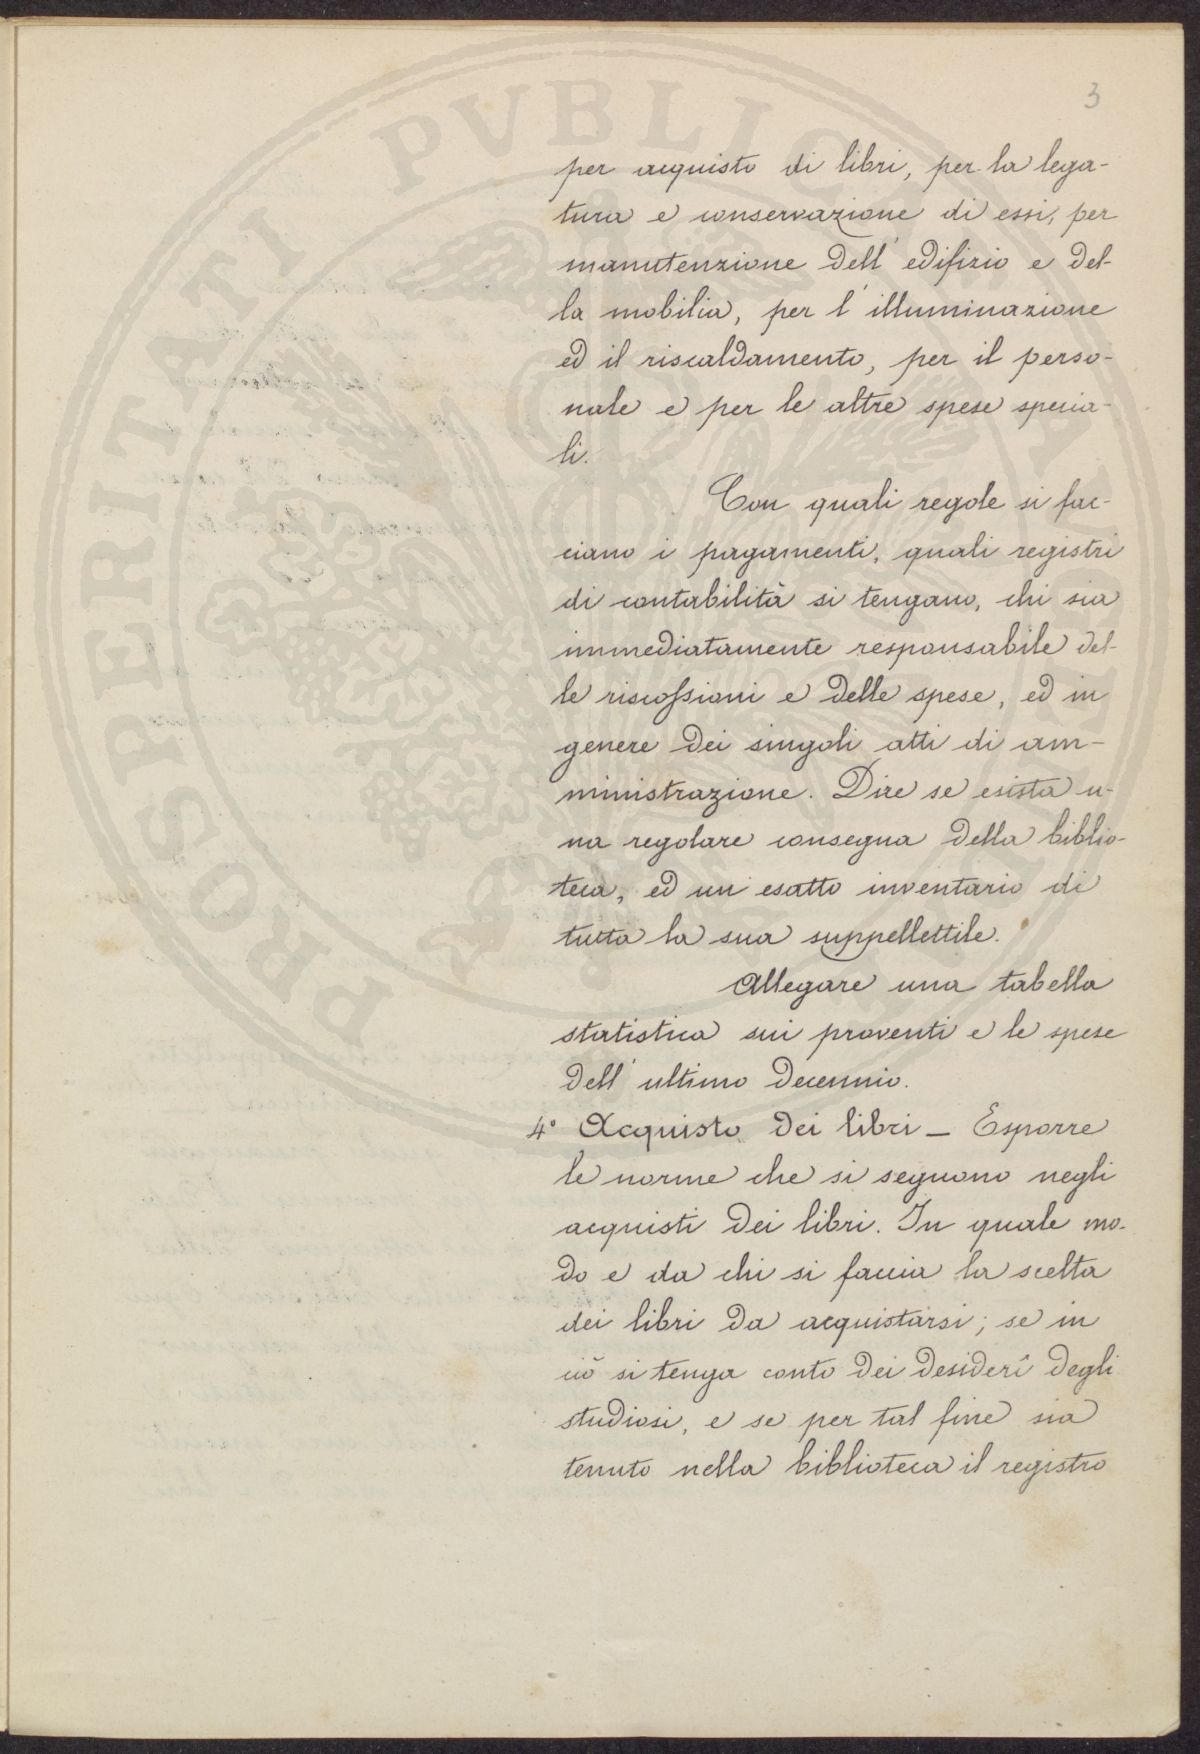 3
per acquisto di libri, per la lega-
tura e conservazione di essi, per
manutenzione dell'edifizio e del-
la mobilia, per l'illuminazione
ed il riscaldamento, per il perso-
nale e per le altre spese specia-
li.
Con quali regole si fac-
ciano i pagamenti, quali registri
di contabilità si tengano, chi sia
immediatamente responsabile del-
le riscossioni e delle spese, ed in
genere dei singoli atti di am-
ministrazione. Dire se esista u-
na regolare consegna della biblio-
teca, ed un esatto inventario di
tutta la sua suppellettile.
Allegare una tabella
statistica sui proventi e le spese
dell'ultimo decennio.
4° Acquisto dei libri – Esporre
le norme che si seguono negli
acquisti dei libri. In quale mo-
do e da chi si faccia la scelta
dei libri da acquistarsi; se in
ciò si tenga conto dei desiderî degli
studiosi, e se per tal fine sia
tenuto nella biblioteca il registro
PROSPERITATI PVBLIC